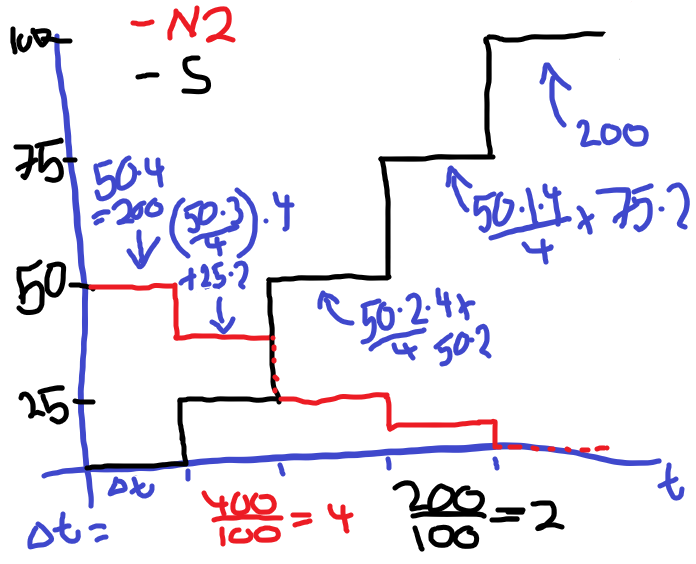 - N2
- S
100
75
50
25
50·4
= 200
(50·3/4)·4
+25·2
50·2·4/4 +
50·2
50·1·4/4 + 75·2
200
Δt
t
Δt =
400/100 = 4
200/100 = 2